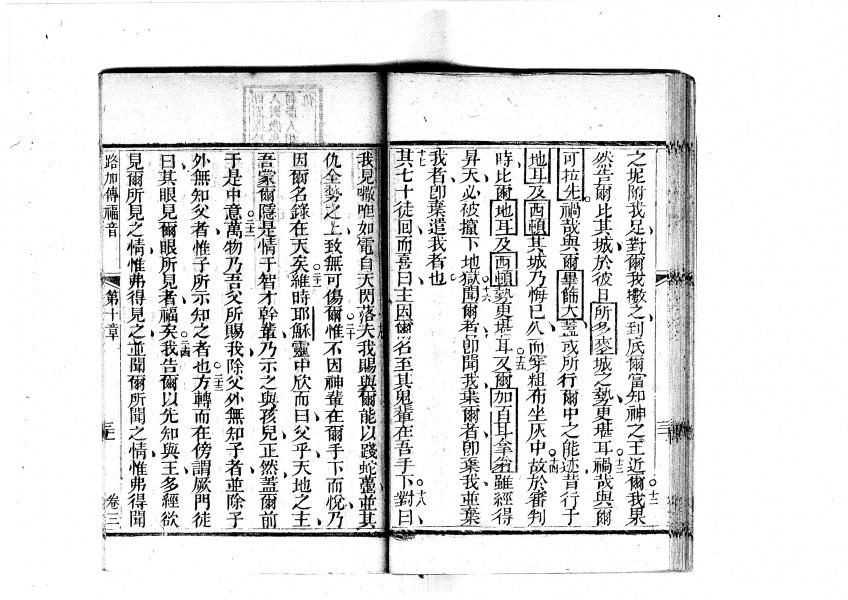 之坭附我足對爾我擻之到底爾當知神之王近爾我果 。十二
然告爾比其城於彼日所多麥城之勢更堪耳禍哉與爾 。十三
可拉先禍哉與爾畢篩大蓋或所行爾中之能迹昔行于
地耳及西頓其城乃悔已久而穿粗布坐灰中故於審判 。十四
時比爾地耳及西頓勢更堪耳又爾加百耳拿翁雖經得 。十五
昇天必被撞下地獄聞爾者卽聞我棄爾者卽棄我並棄 。十六
我者卽棄遣我者也
其七十徒回而喜曰主因爾名至其鬼輩在吾手下對曰 。十七 。十八
我見嘰呾如電自天閃落夫我賜與爾能以踐蛇蠆並其
仇全勢之上致無可傷爾惟不因神輩在爾手下而悅乃 。二十
因爾名錄在天矣維時耶穌靈中欣而曰父乎天地之主 。二十一
吾蒙爾隱是情于智才幹輩乃示之與孩兒正然蓋爾前
于是中意萬物乃吾父所賜我除父外無知子者並除子 。二十二
外無知父者惟子所示知之者也方轉而在傍謂厥門徒 。二十三
曰其眼見爾眼所見者福矣我告爾以先知與王多經欲 。二十四
見爾所見之情惟弗得見之並聞爾所聞之情惟弗得聞
路加傳福音 第十章 三 卷三